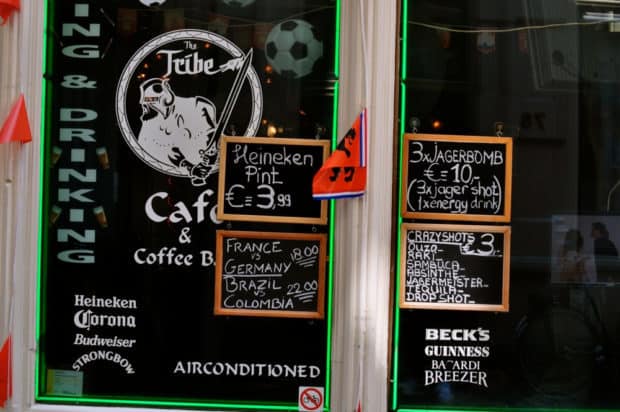 ING & DRINKING
The
Tribe
Café
&
Coffee B
Heineken
Corona
Budweiser
STRONGBOW
Heineken
Pint
€=3,99
FRANCE 18.00
vs
GERMANY
BRAZIL 22.00
vs
COLOMBIA
AIRCONDITIONED
3xJAGERBOMB
€=10,-
(3xjager shot)
(1xenergy drink)
CRAZYSHOTS €3,-
OUZO
RAKI
SAMBUCA
ABSINTHE
JAGERMEISTER
TEQUILA
DROP SHOT
BECK'S
GUINNESS
BACARDI
BREEZER